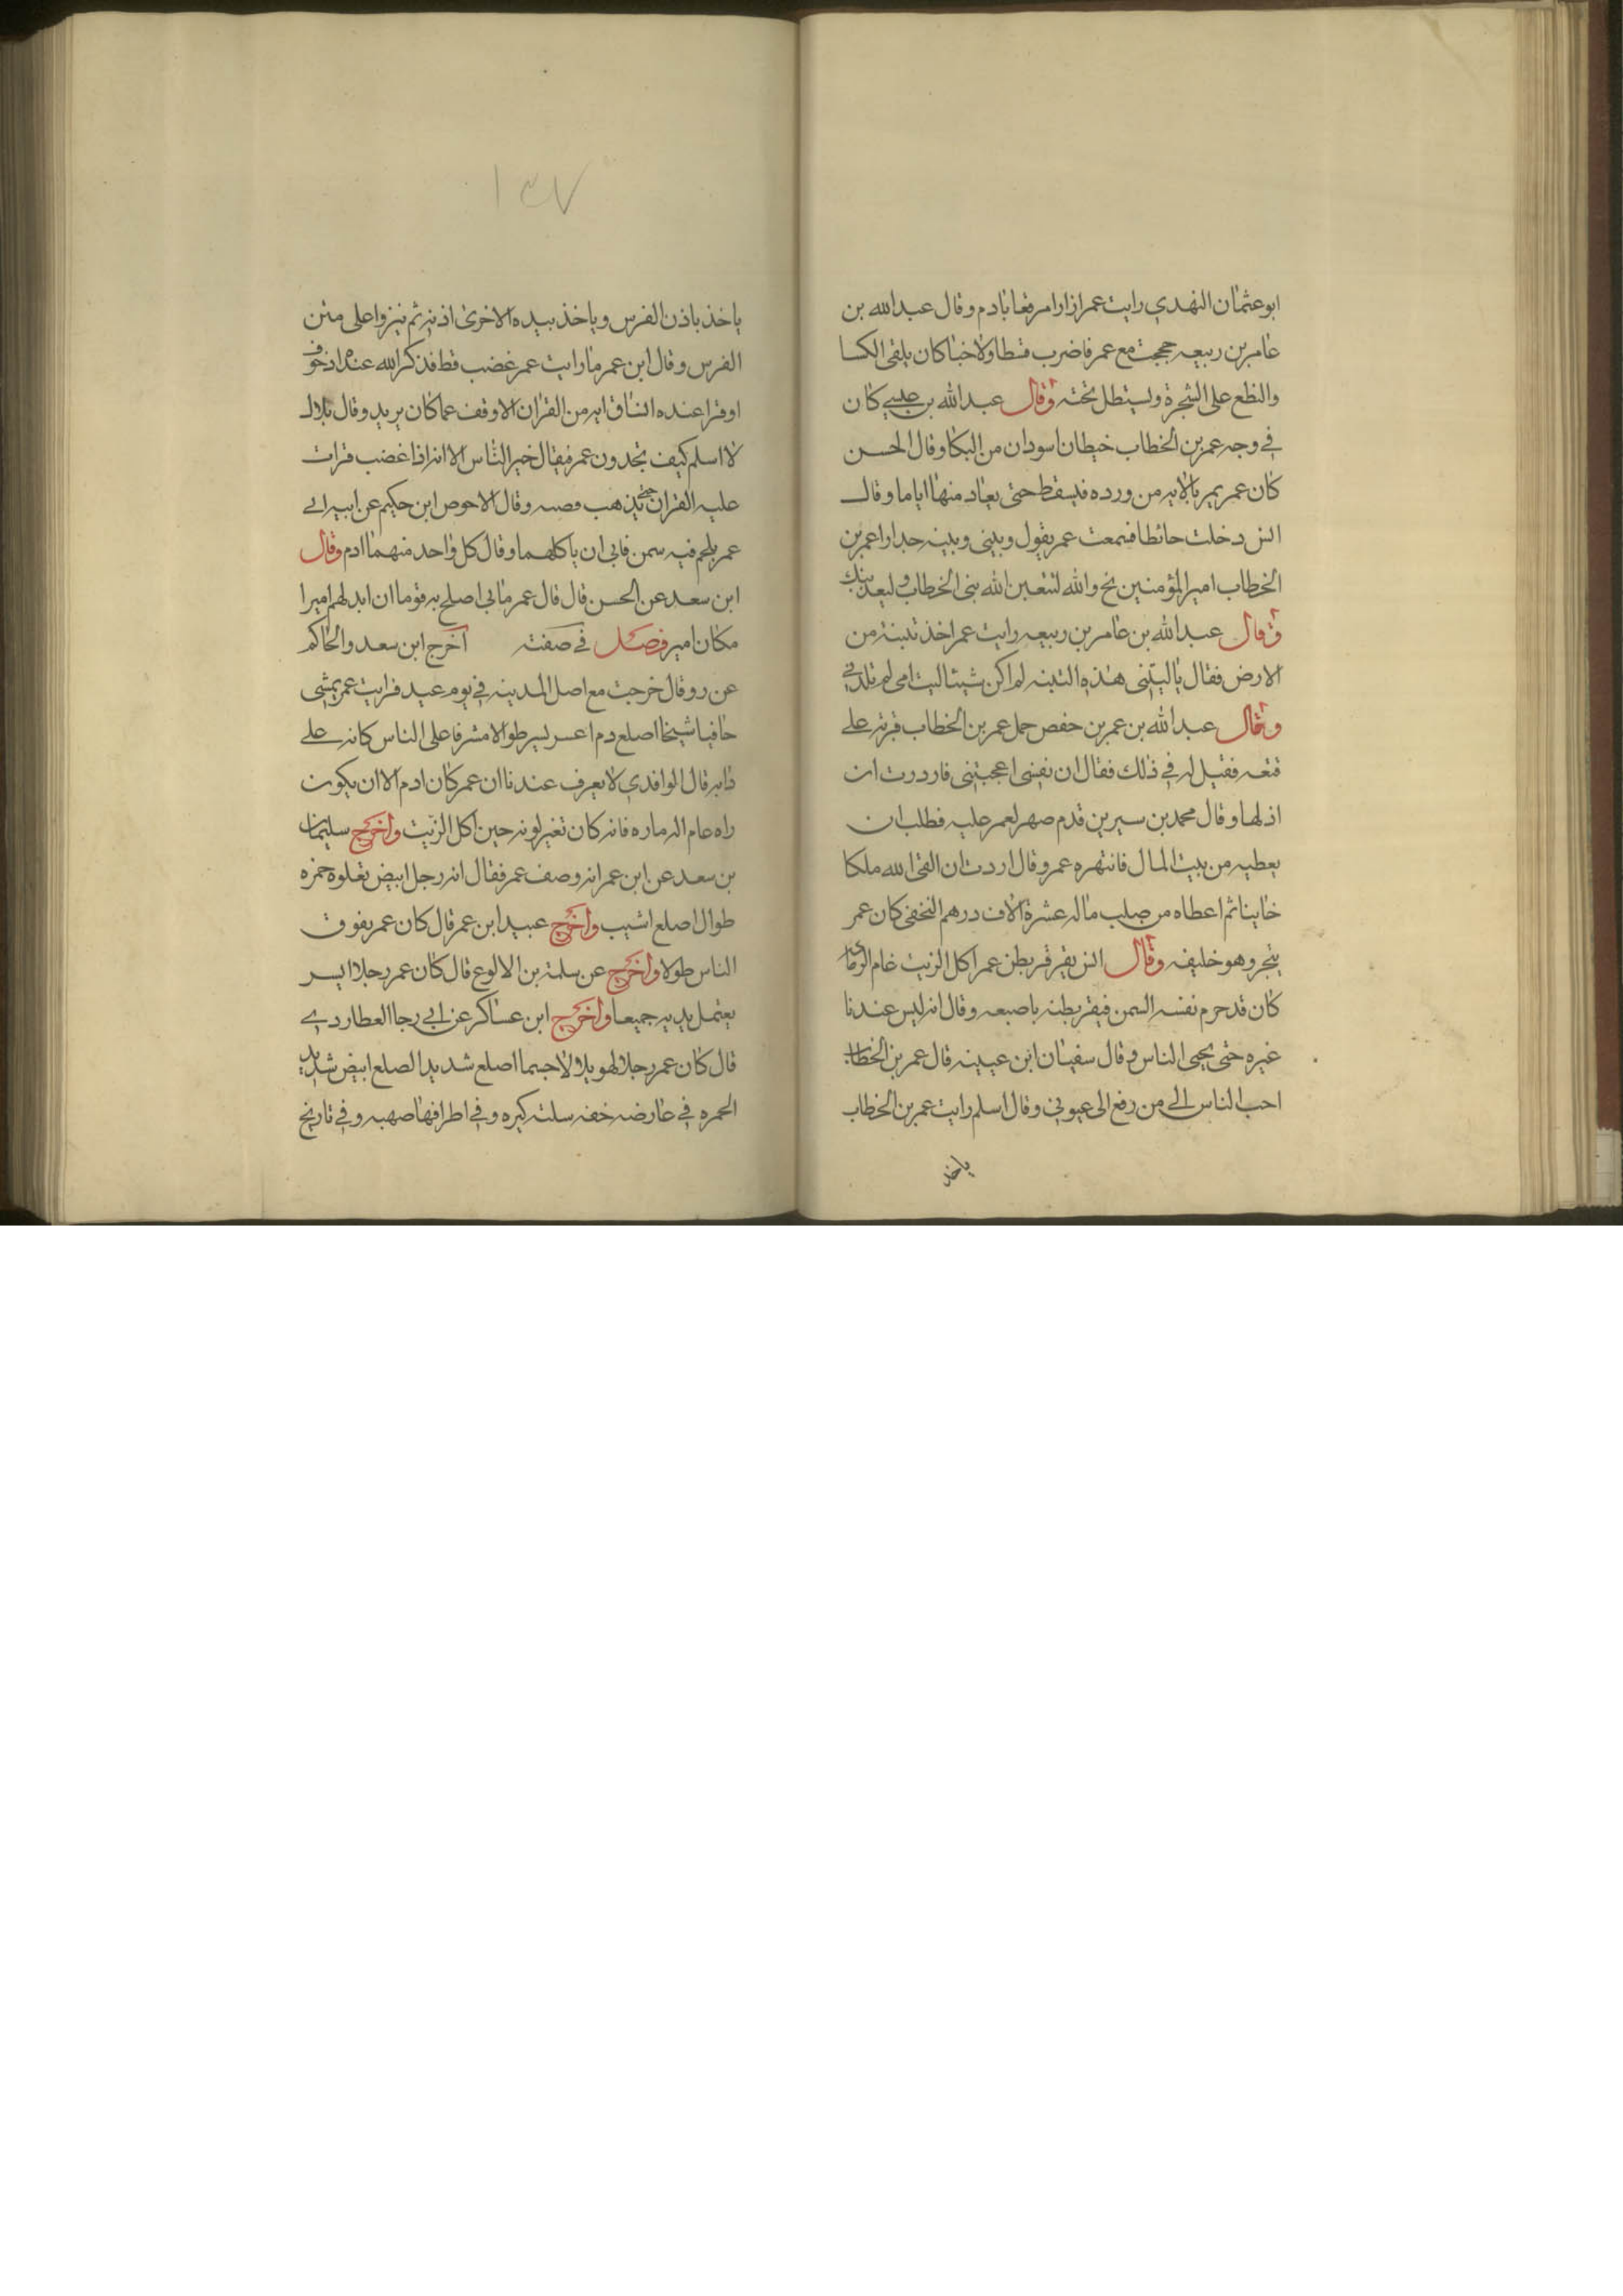 ابو عثمان النهدي رايت عمر ازارا مرقعا بادم وقال عبد الله بن
عامر بن ربيعه حججت مع عمر فاضرب فسطاو لاخبا كان يلقى الكسا
والنطع على الشجرة ويستطل تحته وقال عبد الله بن عيسے كان
في وجه عمر بن الخطاب خيطان اسودان من البكا وقال الحسن
كان عمر يمر بالايه من ورده فيسقط حتى يعاد منها اياما وقال
انس دخلت حائطا فسمعت عمر يقول وبينى وبينه جدارا عمر بن
الخطاب امير المؤمنين بخ والله لتتعين الله بنى الخطاب او ليعذبنك
وقال عبد الله بن عامر بن ربيعه رايت عمر اخذ تبنة من
الارض فقال ياليتنى هذه التبنه لم اكن شيئا ليت امى لم تلدنى
وقال عبد الله بن عمر بن حفص حمل عمر بن الخطاب قربة على
عنقه فقيل له في ذلك فقال ان نفسى اعجبتنى فاردرت ان
اذلها وقال محمد بن سيرين قدم صهر لعمر عليه فطلب ان
يعطيه من بيت المال فانتهره عمر وقال اردت ان القى الله ملكا
خاينا ثم اعطاه من صلب ماله عشرة الاف درهم النخفى كان عمر
يتجر وهو خليفه وقال انس يقرقر بطن عمر اكل الزيت عام الرماى
كان قد حرم نفسه السمن فيقر بطنه باصبعه وقال انه ليس عندنا
غيره حتى يحيى الناس وقال سفيان ابن عيينه قال عمر بن الخطاب
احب الناس الى من رفع الى عيوبي وقال اسلم رايت عمر بن الخطاب
ياخذ
١٣٧
ياخذ باذن الفرس وياخذ بيده الاخرى اذنه ثم ينزوا على متن
الفرس وقال ابن عمر ما رايت عمر غضب قط فذكر الله عنده اذ خوف
او قرا عنده انساق ايه من القران الا وقف عما كان يريد وقال بلال
لا اسلم كيف تجدون عمر فيقال خير الناس الا انه اذا غضب قرات
عليه القران حتى يذهب وقال الاحوص ابن حكيم عن ابيه اتے
عمر بلحم فيه سمن فابى ان ياكلهما وقال كل واحد منهما ادم وقال
ابن سعد عن الحسن قال قال عمر مابى اصلح به قوما ان ابدلهم اميرا
مكان امير فصل في صفته اخرج ابن سعد والحاكم
عن رو قال خرجت مع اصل المدينه في يوم عيد فرايت عمر يمشى
حافيا شيخا اصلع دم اعسر ليسر طوالا مشرفا على الناس كانه على
دابه قال الوافدي لا يعرف عندنا ان عمر كان ادم الا ان يكون
راه عام الرماره فانه كان تغير لونه حين اكل الزيت واخرج سليمان
بن سعد عن ابن عمر انه وصف عمر فقال انه رجل ابيض تغلوه حمره
طوال اصلع اشيب واخرج عبيد ابن عمر قال كان عمر يفوق
الناس طولا واخرج عن سلمة بن الالوع قال كان عمر رجلا ايسر
يعتمل يديه جميعا واخرج ابن عساكر عن ابي رجا العطاردے
قال كان عمر رجلا لهويلا لاجيما اصلع شديد الصلع ابيض شديد
الحمره في عارضه خفه سلته كيره وفي اطرافها صهبه وفي تاريخ